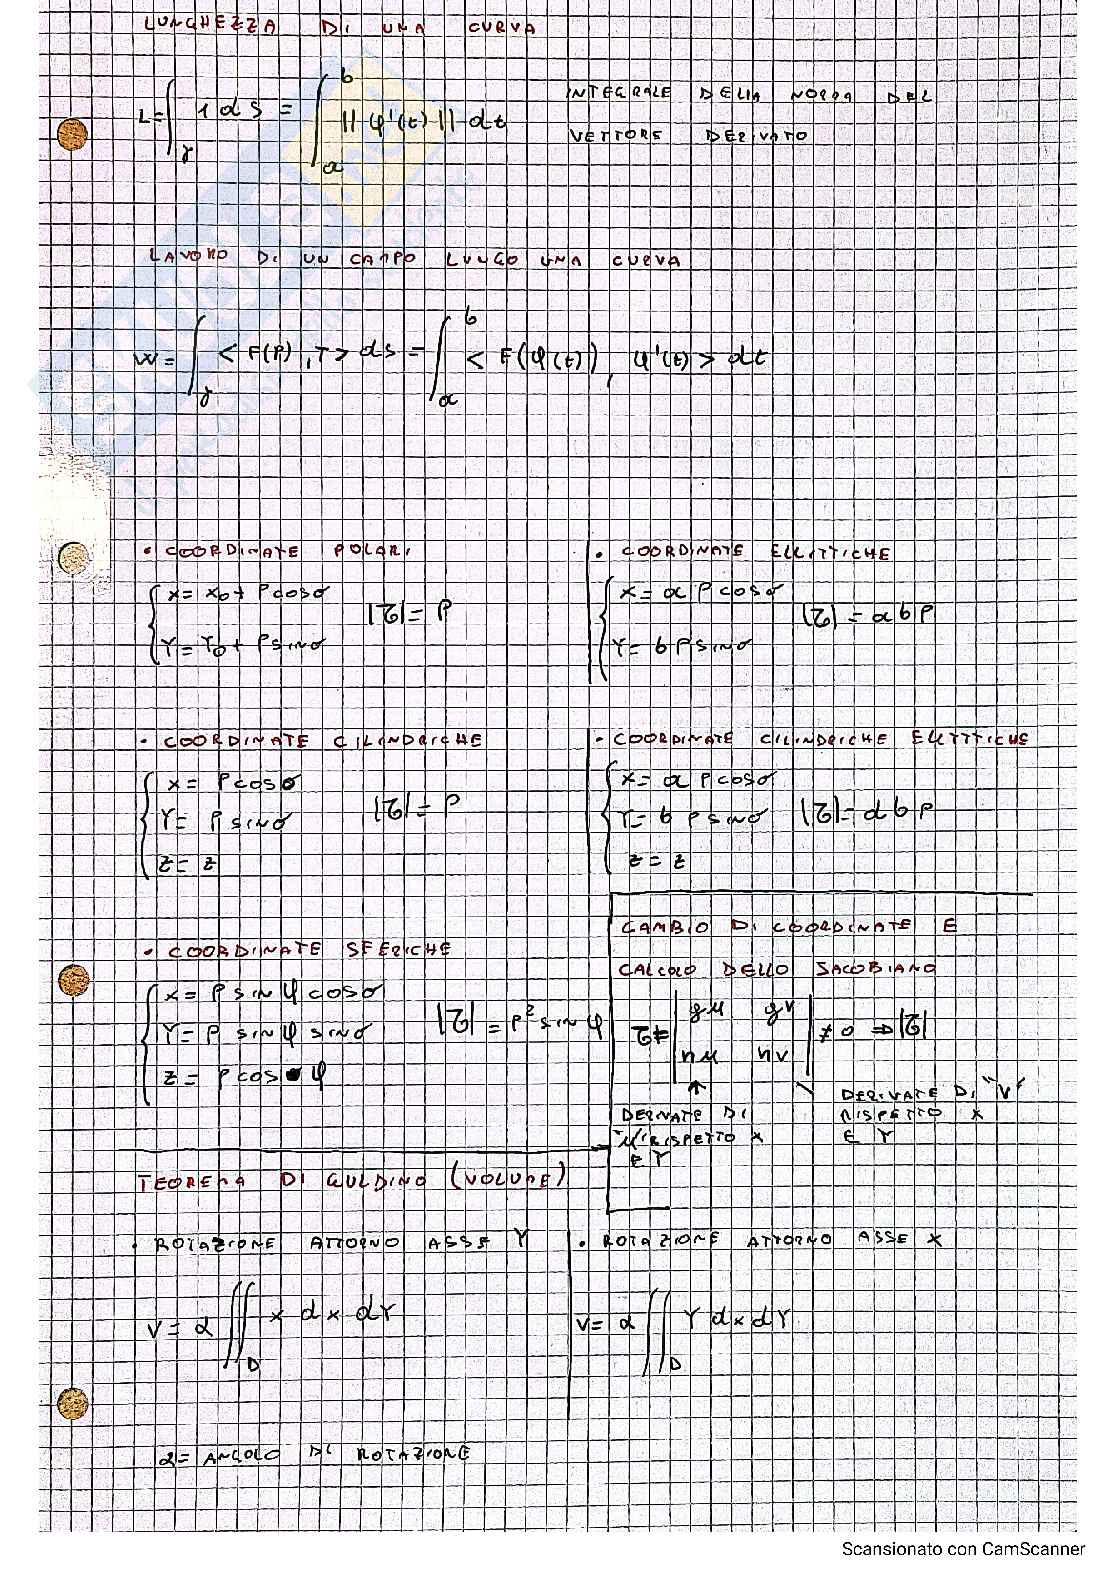 LUNGHEZZA DI UNA CURVA
L=∫_γ 1 ds = ∫_a^b ||φ'(t)|| dt
INTEGRALE DELLA NORMA DEL
VETTORE DERIVATO
LAVORO DI UN CAMPO LUNGO UNA CURVA
W = ∫_γ < F(P), T > ds = ∫_a^b < F(φ(t)), φ'(t) > dt
• COORDINATE POLARI
{ x = x₀ + ρ cos σ
Y = Y₀ + ρ sin σ
|J| = ρ
• COORDINATE ELLITTICHE
{ x = a ρ cos σ
Y = b ρ sin σ
|J| = a b ρ
• COORDINATE CILINDRICHE
{ x = ρ cos σ
Y = ρ sin σ
z = z
|J| = ρ
• COORDINATE CILINDRICHE ELLITTICHE
{ x = a ρ cos σ
Y = b ρ sin σ
z = z
|J| = a b ρ
• COORDINATE SFERICHE
{ x = ρ sin φ cos σ
Y = ρ sin φ sin σ
z = ρ cos φ
|J| = ρ² sin φ
CAMBIO DI COORDINATE E
CALCOLO DELLO JACOBIANO
J = | gu gv
hu hv | ≠ 0 ⇒ |J|
DERIVATE DI
"u" RISPETTO X
E Y
DERIVATE DI "V"
RISPETTO X
E Y
TEOREMA DI GULDINO (VOLUME)
• ROTAZIONE ATTORNO ASSE Y
V = α ∬_D x dx dY
• ROTAZIONE ATTORNO ASSE X
V = α ∬_D Y dx dY
α = ANGOLO DI ROTAZIONE
Scansionato con CamScanner